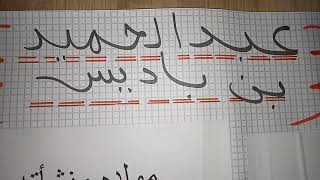 عبد الحميد
بن باديس